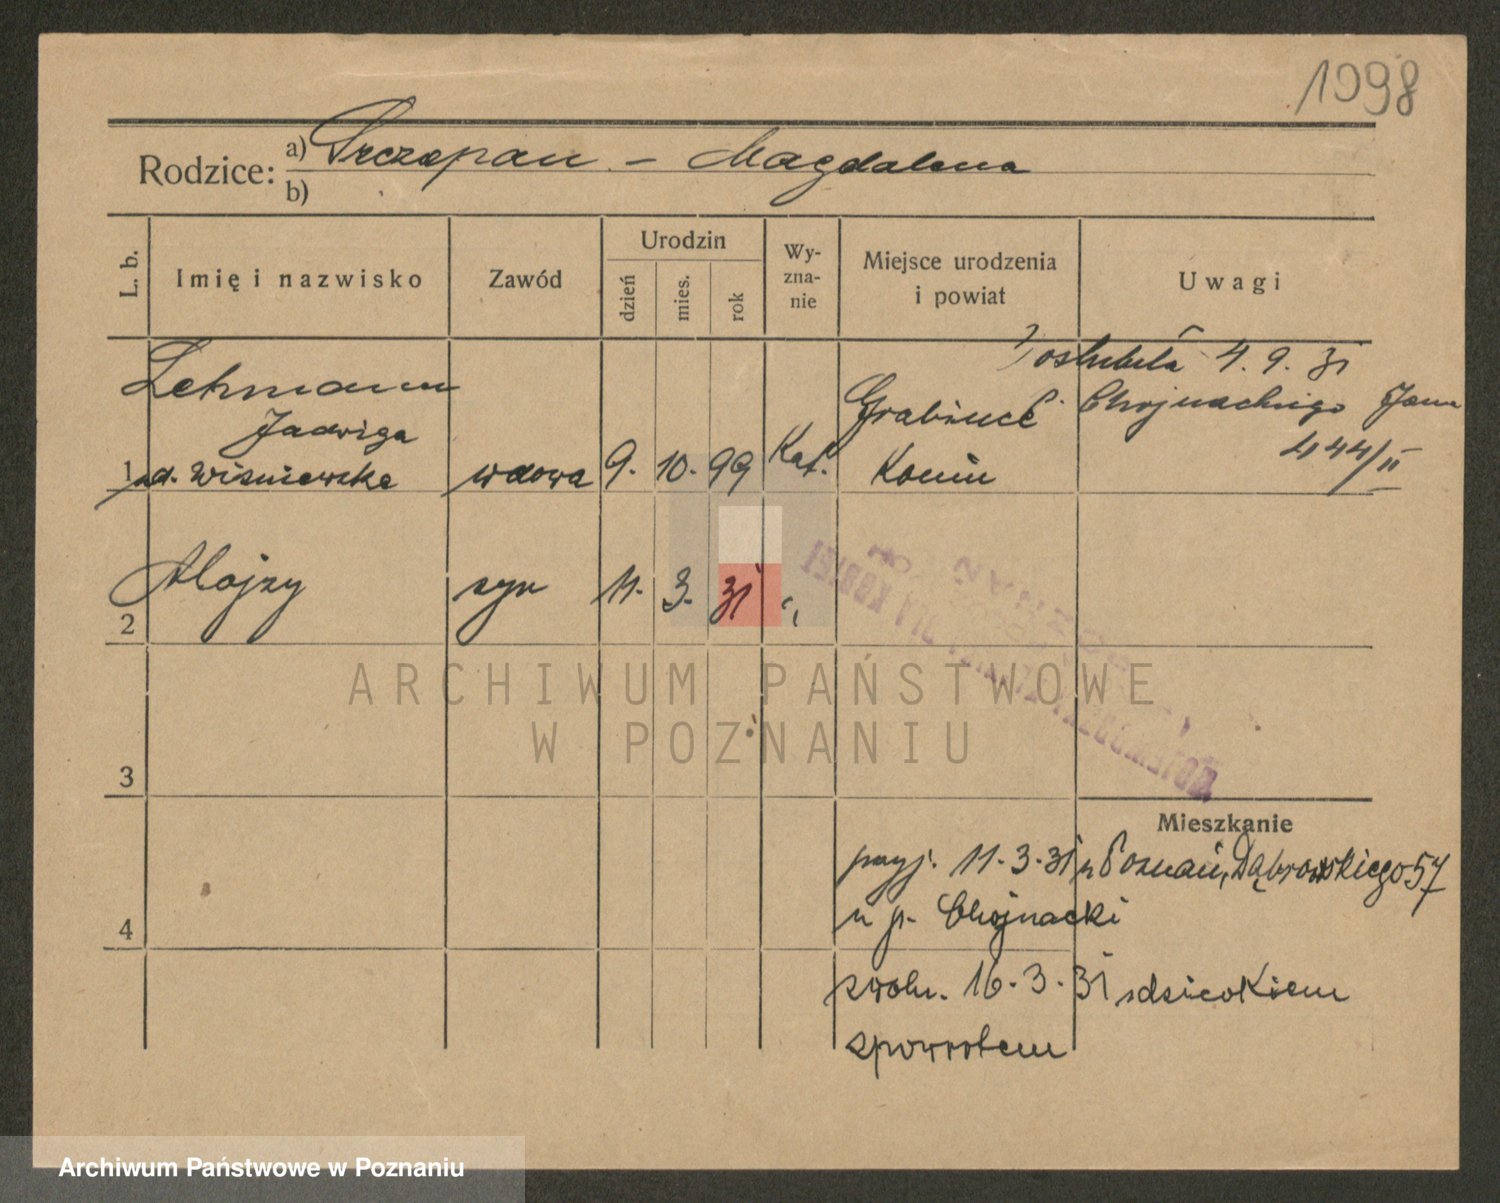 1998
Rodzice: a) Szczepan – Magdalena
b)
L. b.
Imię i nazwisko
Zawód
Urodzin
dzień
mies.
rok
Wy-
zna-
nie
Miejsce urodzenia
i powiat
Uwagi
Lehmann
Jadwiga
1 d. Wiśniewska wdowa 9. 10. 99 Kat.
Konin
poślubiła 4. 9. 31
Chojnackiego Jana
444/II
2 Alojzy syn 11. 3. 31 "
3
4
Mieszkanie
przyj. 11-3-31 z Poznań, Dąbrowskiego 57
u p. Chojnacki
zwoln. 16-3-31 z dzieckiem
zpowrotem
ARCHIWUM PAŃSTWOWE
W POZNANIU
Archiwum Państwowe w Poznaniu